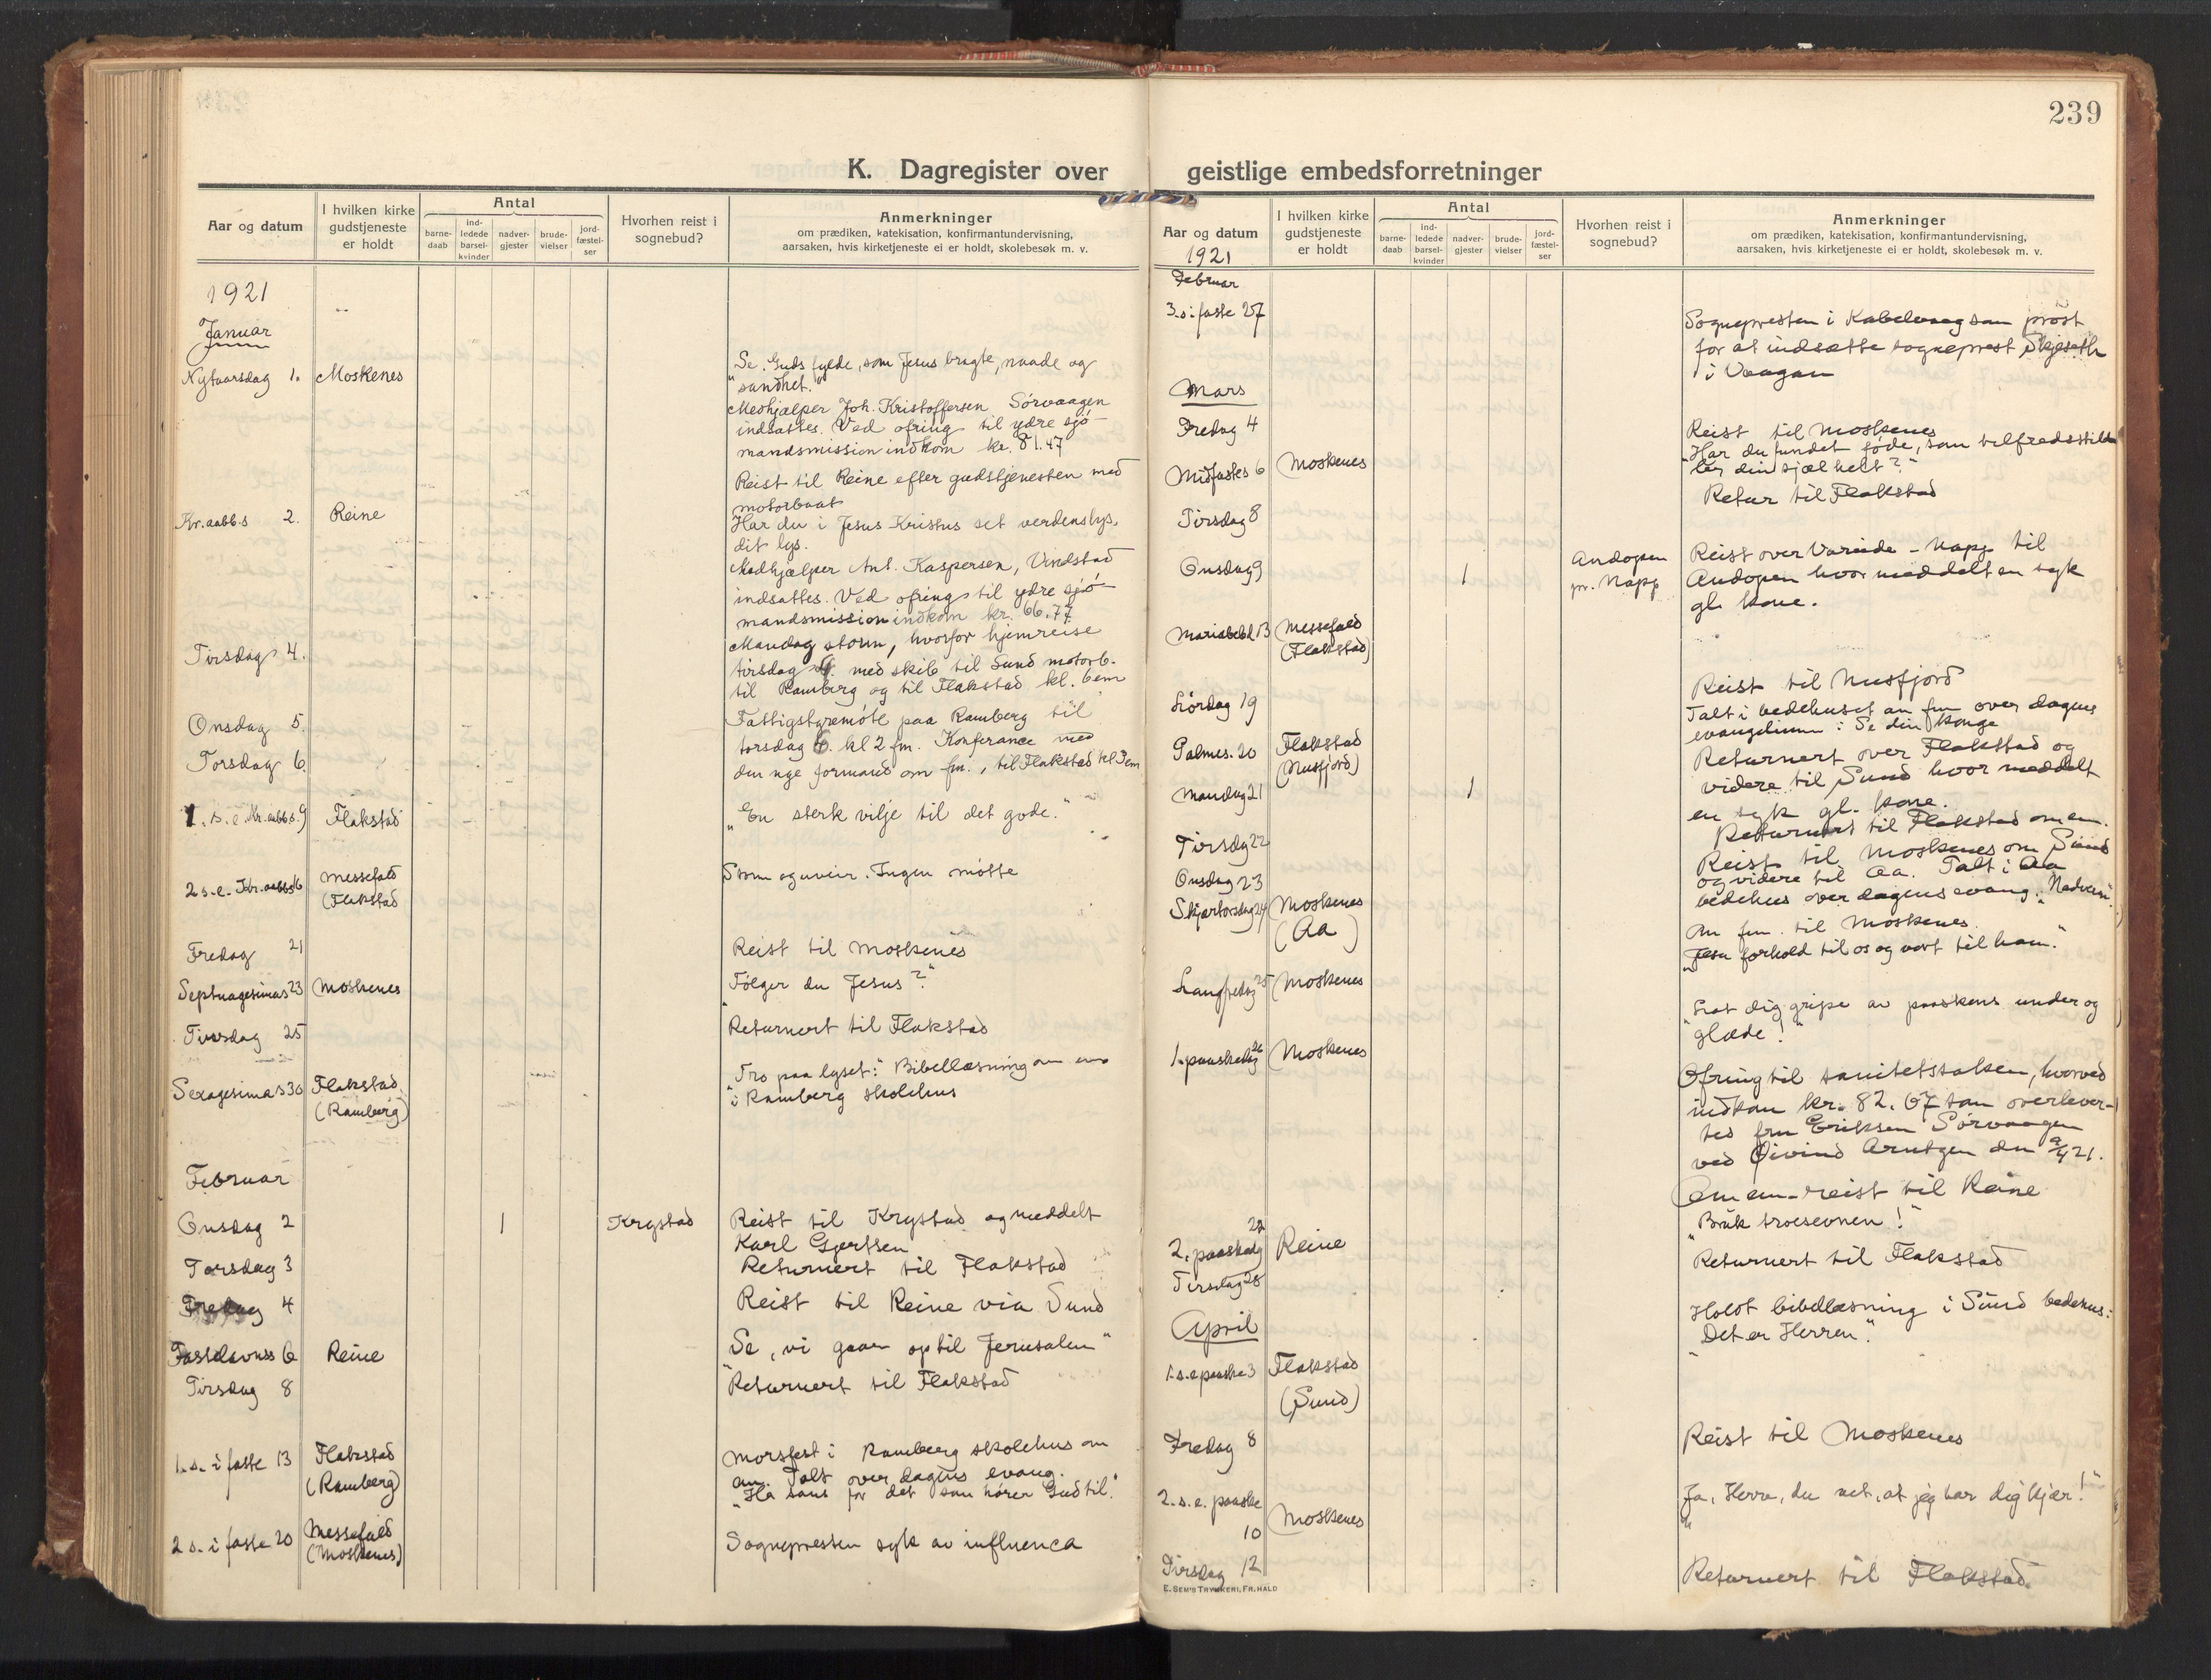 239
K. Dagregister over geistlige embedsforretninger
Aar og datum
I hvilken kirke
gudstjeneste
er holdt
Antal
barne-
daab
ind-
ledede
barsel-
kvinder
nadver-
gjester
brude-
vielser
jord-
fæstel-
ser
Hvorhen reist i
sognebud?
Anmerkninger
om prædiken, katekisation, konfirmantundervisning,
aarsaken, hvis kirketjeneste ei er holdt, skolebesøk m. v.
1921
Januar
Nytaarsdag 1. Moskenes
Se, Guds fylde, som Jesus bragte, naade og
"sandhet."
Medhjælper Joh. Kristoffersen Sörvaagen
indsattes. Ved ofring til ydre sjö-
mandsmission indkom kr. 81.47
Reist til Reine efter gudstjenesten med
motorbaat
Kr. aabb. s 2. Reine
Har du i Jesus Kristus set verdens lys,
dit lys.
Medhjælper Ant. Kaspersen, Vindstad
indsattes. Ved ofring til ydre sjö-
mandsmission indkom kr. 66.77
Mandag storm, hvorfor hjemreise
Tirsdag 4.
tirsdag 4. med skib til Sund motorb.
til Ramberg og til Flakstad kl. 6 em
Onsdag 5.
Fattigstyremöte paa Ramberg til
Torsdag 6.
torsdag 6. kl 2 fm. Konferance med
den nye formand om fm., til Flakstad kl 7 em
1. s. e. Kr. aabb. s. 9 Flakstad
"En sterk vilje til det gode."
2 s. e. Kr. aabb s 16 Messefald
(Flakstad
Storm og uveir. Ingen mötte
Fredag 21
Reist til Moskenes
Septuagesimas 23 Moskenes
"Følger du Jesus?"
Tirsdag 25
Returnert til Flakstad
Sexagesimas 30 Flakstad
(Ramberg)
"Tro paa lyset." Bibellæsning om em
i Ramberg skolehus
Februar
Onsdag 2 1 Krystad
Reist til Krystad og meddelt
Karl Gjertsen
Torsdag 3
Returnert til Flakstad
Fredag 4
Reist til Reine via Sund
Fastelavnss 6 Reine
"Se, vi gaar op til Jerusalem"
Tirsdag 8
Returnert til Flakstad
1. s. i faste 13 Flakstad
(Ramberg)
Morsfest i Ramberg skolehus om
em. Talt over dagens evang.
"Ha sans for det som hører Gud til."
2 s. i faste 20 Messefald
(Moskenes)
Sognepresten syk av influenca
Aar og datum
I hvilken kirke
gudstjeneste
er holdt
Antal
barne-
daab
ind-
ledede
barsel-
kvinder
nadver-
gjester
brude-
vielser
jord-
fæstel-
ser
Hvorhen reist i
sognebud?
Anmerkninger
om prædiken, katekisation, konfirmantundervisning,
aarsaken, hvis kirketjeneste ei er holdt, skolebesøk m. v.
1921
Februar
3. s. i faste 27
Sognepresten i Kabelvaag som prost
for at indsætte sogneprest Skjeseth
i Vaagan
Mars
Fredag 4
Reist til Moskenes
Midfastes 6 Moskenes
"Har du fundet føde, som tilfredsstil-
ler din sjæl helt?"
Tirsdag 8
Retur til Flakstad
Onsdag 9 1 Andopen
pr. Napp
Reist over Vareide - Napp til
Andopen hvor meddelt en syk
gl. kone.
Mariabebd. 13 Messefald
(Flakstad)
Lördag 19
Reist til Nusfjord
Palmes. 20 Flakstad
(Nusfjord)
Talt i bedehuset om fm over dagens
evangelium: Se din konge
Mandag 21 1
Returnert over Flakstad og
videre til Sund hvor meddelt
en syk gl. kone.
Tirsdag 22
Returnert til Flakstad om em.
Onsdag 23
Reist til Moskenes om Sund
og videre til Aa. Talt i Aa
Skjærtorsdag 24 Moskenes
(Aa)
bedehus over dagens evang.:
Om fm. til Moskenes
Langfredag 25 Moskenes
"Jesu forhold til os og vort til ham."
1. paaskedag 26 Moskenes
"Lat dig gripe av paaskens under og
glæde!"
Ofring til sanitetssaken, hvorved
indkom kr. 82.07 som overlever-
tes fru Eriksen Sörvaagen
ved Öivind Arntzen den 2/4 21.
Om em. reist til Reine
2. paaskedag Reine
"Bruk troesevnen!"
Tirsdag 28
Returnert til Flakstad
April
1. s. e paaske 3 Flakstad
(Sund)
Holdt bibellæsning i Sund bedehus:
"Det er Herren."
Fredag 8
Reist til Moskenes
2. s. e. paaske
10 Moskenes
"Ja, Herre, du vet, at jeg har dig kjær!"
Tirsdag 12
Returnert til Flakstad.
E. SEM'S TRYKKERI, FR.HALD